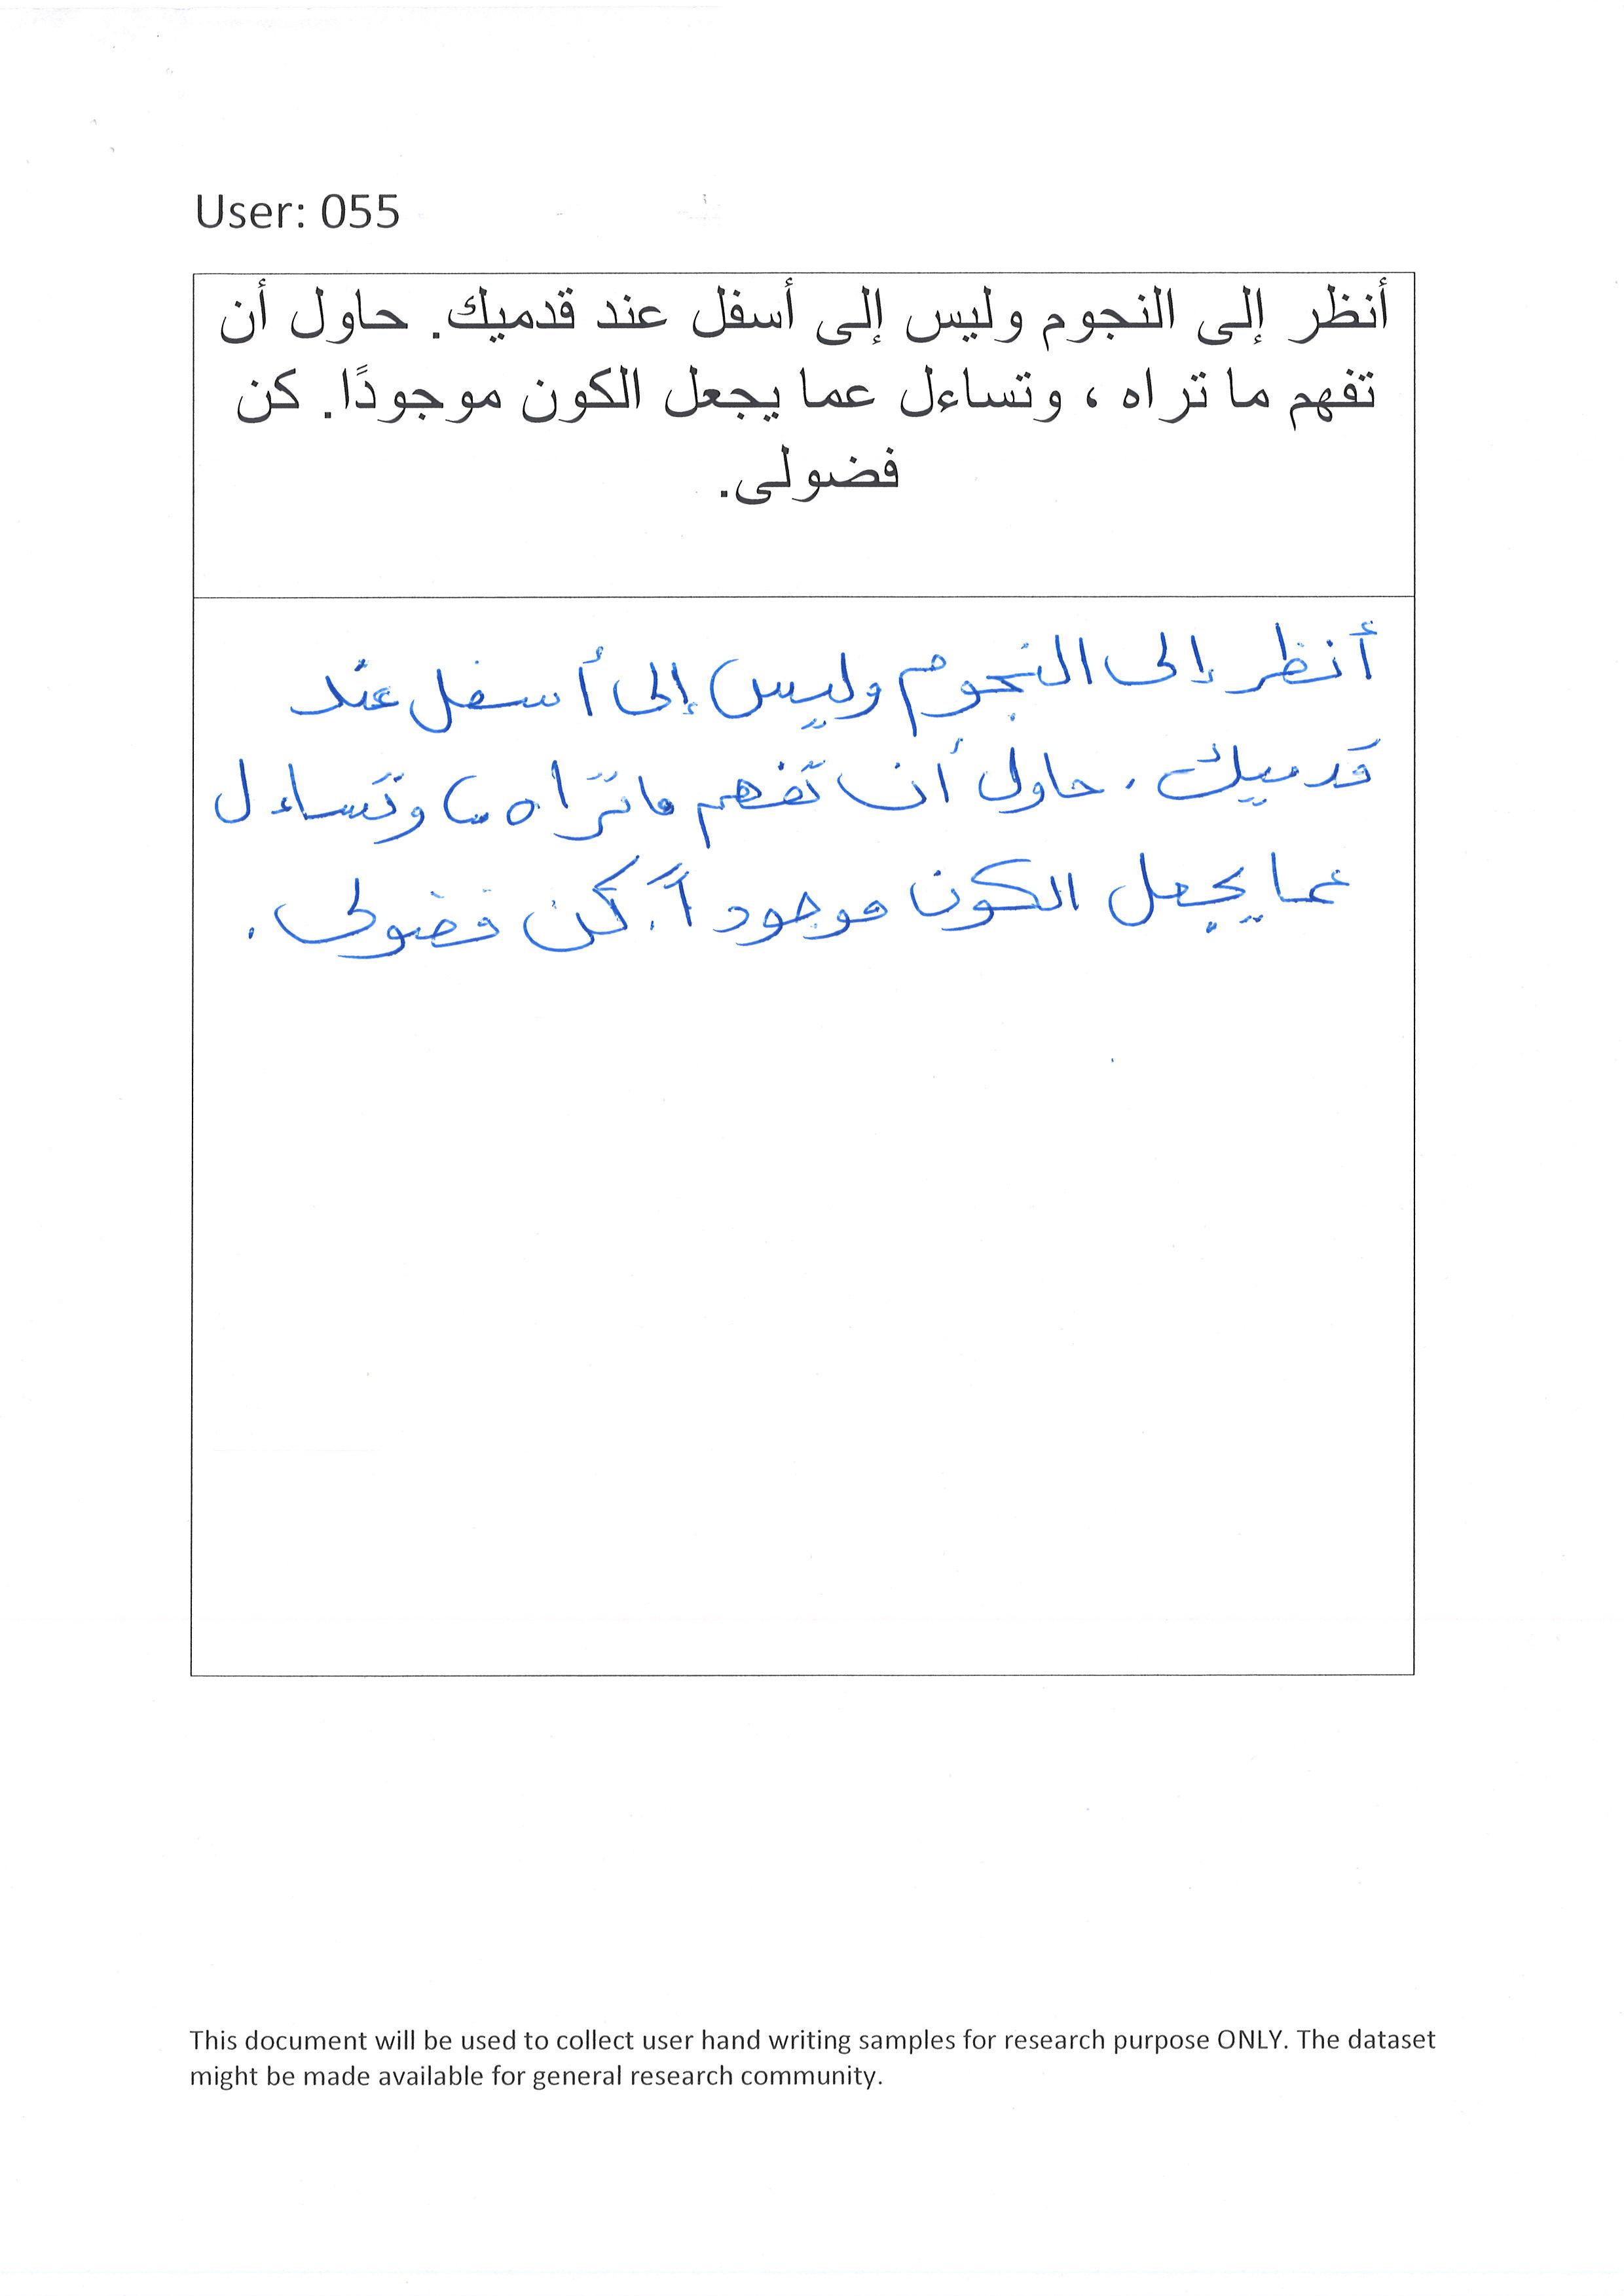 User: 055
أنظر إلى النجوم وليس إلى أسفل عند قدميك. حاول أن
تفهم ما تراه ، وتساءل عما يجعل الكون موجودًا. كن
فضولى.
أنظر إلى النجوم وليس إلى أسفل عند
قدميك . حاول أن تفهم ما تراه ، وتساءل
عما يجعل الكون موجوداً . كن فضولى .
This document will be used to collect user hand writing samples for research purpose ONLY. The dataset
might be made available for general research community.